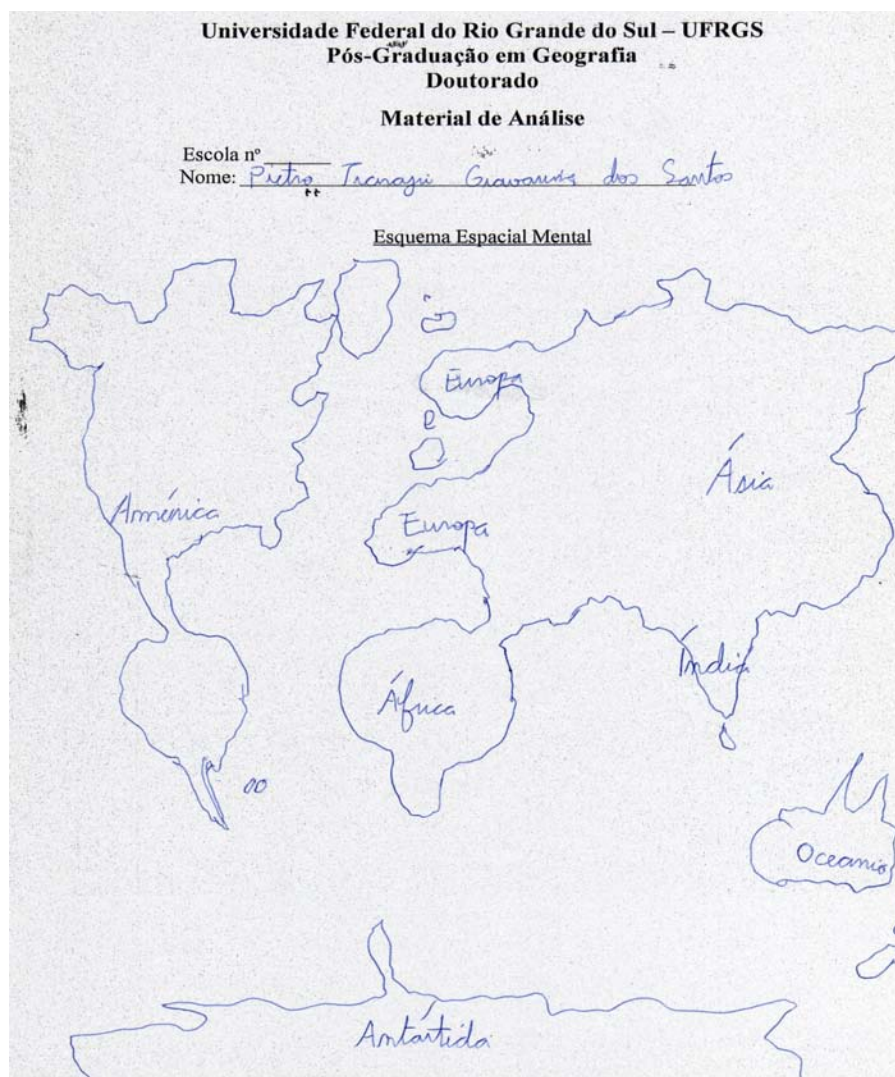 Universidade Federal do Rio Grande do Sul – UFRGS
Pós-Graduação em Geografia
Doutorado
Material de Análise
Escola nº
Nome: Pietro dos Santos
Esquema Espacial Mental
Europa
Ásia
América
Europa
Índia
África
Oceanio
Antártida